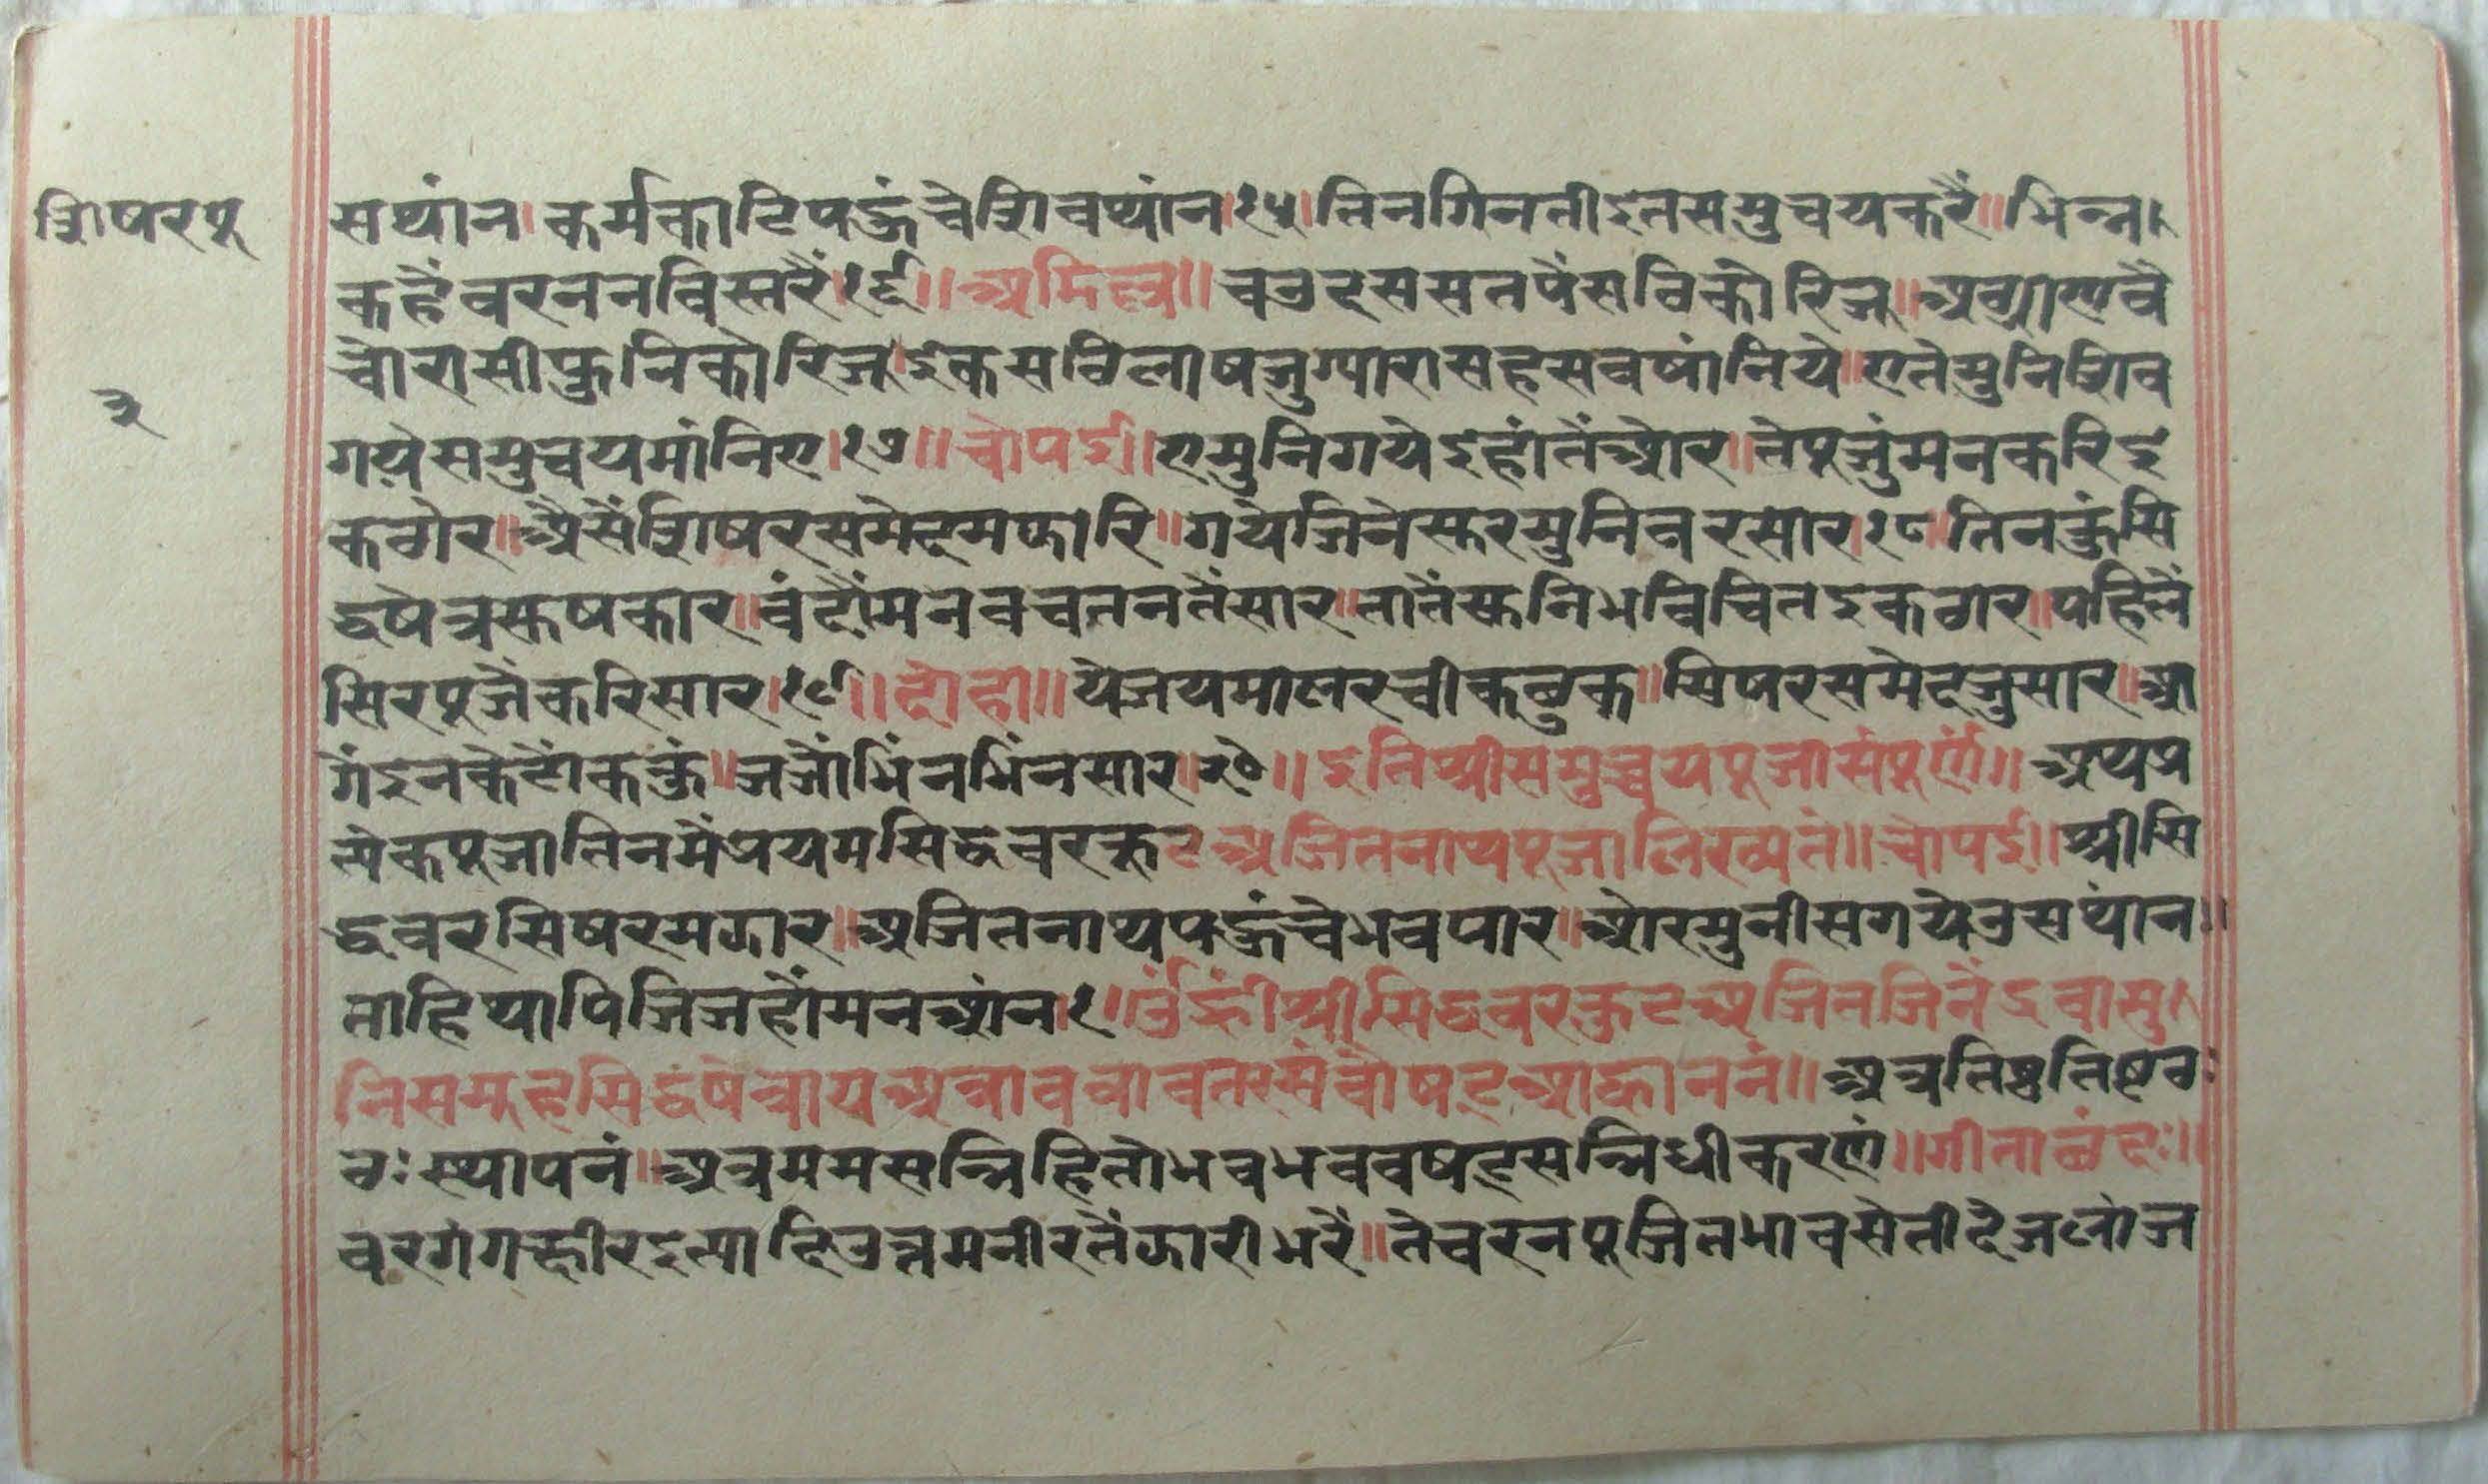 शिषरपू
३
सथांन।कर्मकाटिपहुंचेशिवथांन।१५।तिनगिनतीइतसमुचयकरैं॥भिन्न२
कहैंवरनननविस्तरैं।१६॥अडिल्ल॥चउदससतपैंसविकोरिजू॥अवग्रीएवै
चौरासीफुनिकोरिजू।इकसविलाषजुग्यारासहसवषांनिये॥एतेमुनिशिव
गयेसमुचयमांनिए।१७॥चौपई॥एमुनिगयेइहांतैंऔर॥तेपूजुंमनकरिइ
कठौर॥ऐसैंशिषरसमेदमझारि॥गयेजिनेस्वरमुनिवरसार।१८।तिनकुंसि
द्धषेत्रसुषकार॥वंदौंमनवचतनतैंसार॥तातैंसुनिभविचितइकठार॥पहिलैं
सिरपूजैंकरिसार।१९॥दोहा॥येजयमालरचीकछुक॥सिषरसमेदजुसार॥आ
गैंइनकेटौंककुं॥जजौंभिंनभिंनसार॥२०॥इतिश्रीसमुच्चयपूजासंपूर्णं॥अथप्र
त्येकपूजातिनमैंप्रथमसिद्धवरकूटअजितनाथपूजालिख्यतं॥चौपई॥श्रीसि
द्धवरसिषरमझार॥अजितनाथपहुंचेभवपार॥औरमुनीसगयेउसथांन॥
ताहिथापिजिजहौंमनआंन।१॥उंह्रींश्रीसिद्धवरकुटअजितजिनेंद्रवामु।
निसमूहसिद्धषेत्रायअत्रावत्रावतरसंवौषट्आह्वाननं॥अत्रतिष्ठतिष्ठठः
ठःस्थापनं॥अत्रममसन्निहितोभवभववषट्सन्निधीकरणं॥गीताछंदः॥
वरगंगह्रीरइत्यादिउत्तमनीरतैंझारीभरैं॥तेचरनपूजितभावसेतीदेजलांज